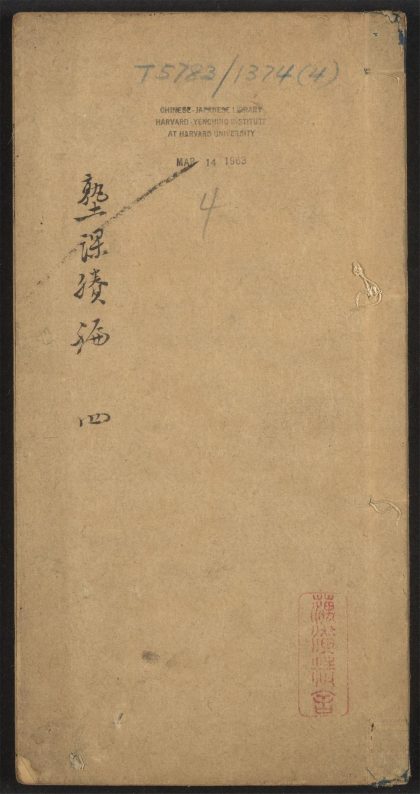 T5783/1374(4)
CHINESE-JAPANESE LIBRARY
HARVARD-YENCHING INSTITUTE
AT HARVARD UNIVERSITY
MAR 14 1963
4
塾課續編 四